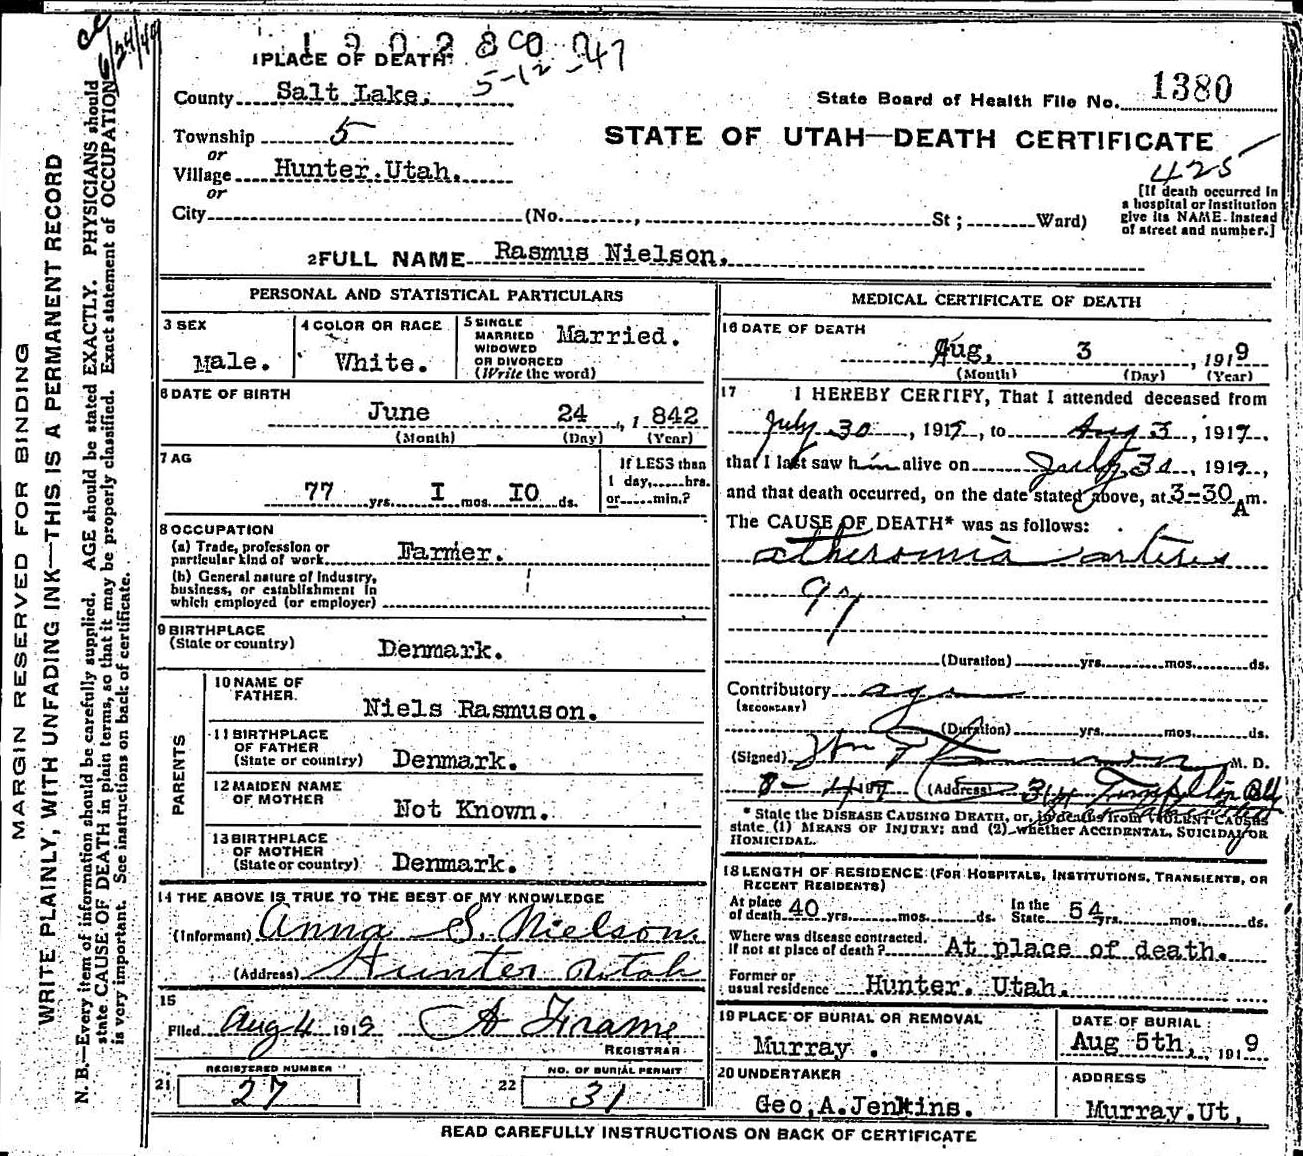 MARGIN RESERVED FOR BINDING
WRITE PLAINLY, WITH UNFADING INK—THIS IS A PERMANENT RECORD
N. B.—Every item of information should be carefully supplied. AGE should be stated EXACTLY. PHYSICIANS should
state CAUSE OF DEATH in plain terms, so that it may be properly classified. Exact statement of OCCUPATION
is very important. See instructions on back of certificate.
6/24/49
1 PLACE OF DEATH
5-12-47
County Salt Lake.
State Board of Health File No. 1380
Township 5
STATE OF UTAH—DEATH CERTIFICATE
or
425
Village Hunter.Utah.
or
City (No. , St ; Ward)
[If death occurred in
a hospital or institution
give its NAME. instead
of street and number.]
2 FULL NAME Rasmus Nielson.
PERSONAL AND STATISTICAL PARTICULARS
3 SEX
Male.
4 COLOR OR RACE
White.
5 SINGLE
MARRIED
WIDOWED
OR DIVORCED
(Write the word)
Married.
6 DATE OF BIRTH
June 24 , 1 842
(Month) (Day) (Year)
7 AG
77 yrs. I mos. IO ds.
If LESS than
1 day, hrs.
or min.?
8 OCCUPATION
(a) Trade, profession or
particular kind of work Farmer.
(b) General nature of industry,
business, or establishment in
which employed (or employer)
9 BIRTHPLACE
(State or country) Denmark.
PARENTS
10 NAME OF
FATHER
Niels Rasmuson.
11 BIRTHPLACE
OF FATHER
(State or country) Denmark.
12 MAIDEN NAME
OF MOTHER Not Known.
13 BIRTHPLACE
OF MOTHER
(State or country) Denmark.
14 THE ABOVE IS TRUE TO THE BEST OF MY KNOWLEDGE
(Informant) Anna S. Nielson.
(Address) Hunter Utah
15
Filed Aug 4 1919 A Frame
REGISTRAR
REGISTERED NUMBER
21 27
NO. OF BURIAL PERMIT
22 31
MEDICAL CERTIFICATE OF DEATH
16 DATE OF DEATH
Aug, 3 , 1919
(Month) (Day) (Year)
17 I HEREBY CERTIFY, That I attended deceased from
July 30 , 1919, to Aug 3 , 1919.
that I last saw him alive on July 30 , 1919,
and that death occurred, on the date stated above, at 3-30 A m.
The CAUSE OF DEATH* was as follows:
97
(Duration) yrs. mos. ds.
Contributory age
(SECONDARY)
(Duration) yrs. mos. ds.
(Signed) M. D.
8-4 191 (Address)
* State the DISEASE CAUSING DEATH, or, in deaths from VIOLENT CAUSES
state (1) MEANS OF INJURY; and (2) whether ACCIDENTAL, SUICIDAL OR
HOMICIDAL.
18 LENGTH OF RESIDENCE (FOR HOSPITALS, INSTITUTIONS, TRANSIENTS, OR
RECENT RESIDENTS)
At place
of death 40 yrs. mos. ds. In the
State 54 yrs. mos. ds.
Where was disease contracted.
if not at place of death? At place of death.
Former or
usual residence Hunter. Utah.
19 PLACE OF BURIAL OR REMOVAL
Murray .
DATE OF BURIAL
Aug 5th, , 1919
20 UNDERTAKER
Geo.A.Jenkins.
ADDRESS
Murray.Ut,
READ CAREFULLY INSTRUCTIONS ON BACK OF CERTIFICATE